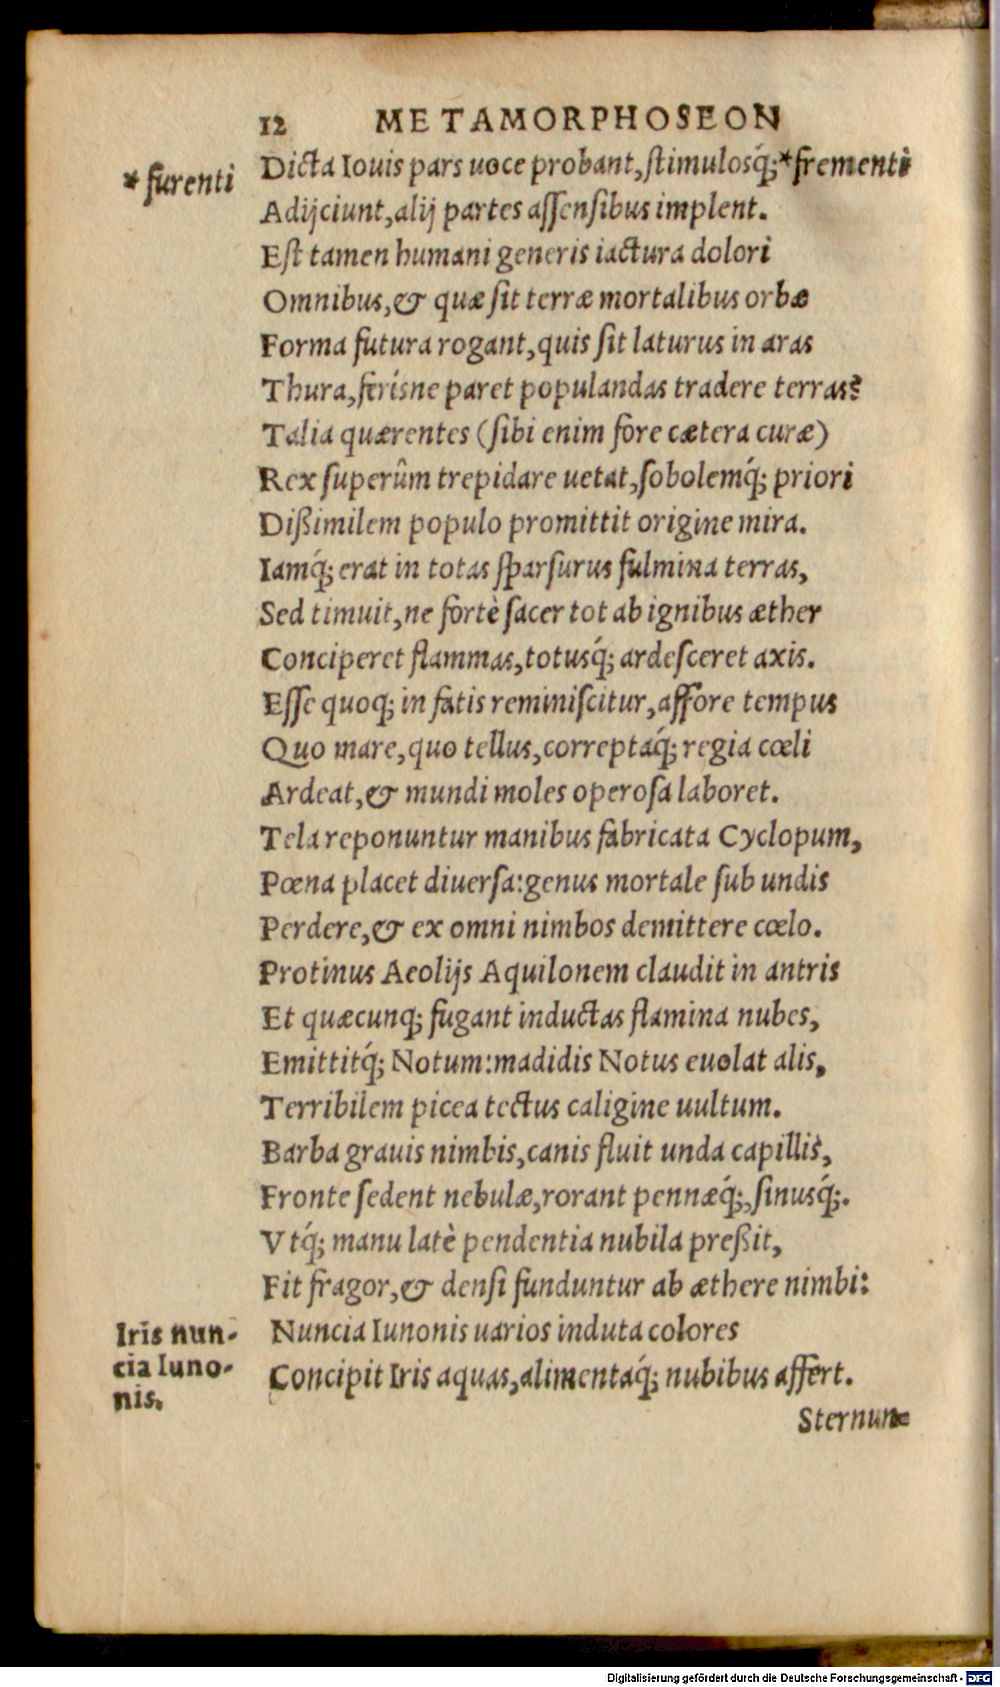 12 METAMORPHOSEON
* furenti
Dicta Iouis pars uoce probant, ſtimulosq́;*frementi
Adijciunt, alij partes aſſenſibus implent.
Eſt tamen humani generis iactura dolori
Omnibus, & quæ ſit terræ mortalibus orbæ
Forma futura rogant, quis ſit laturus in aras
Thura, ferísne paret populandas tradere terras?
Talia quærentes (ſibi enim fore cætera curæ)
Rex ſuperûm trepidare uetat, ſobolemq́; priori
Dißimilem populo promittit origine mira.
Iamq́; erat in totas ſparſurus fulmina terras,
Sed timuit, ne fortè ſacer tot ab ignibus æther
Conciperet flammas, totusq́; ardeſceret axis.
Eſſe quoq; in fatis reminiſcitur, affore tempus
Quo mare, quo tellus, correptaq́; regia cœli
Ardeat, & mundi moles operoſa laboret.
Tela reponuntur manibus fabricata Cyclopum,
Pœna placet diuerſa: genus mortale ſub undis
Perdere, & ex omni nimbos demittere cœlo.
Protinus Aeolijs Aquilonem claudit in antris
Et quæcunq; fugant inductas flamina nubes,
Emittitq́; Notum: madidis Notus euolat alis,
Terribilem picea tectus caligine uultum.
Barba grauis nimbis, canis fluit unda capillis,
Fronte ſedent nebulæ, rorant pennæq́;, ſinusq́;.
Vtq́; manu latè pendentia nubila preßit,
Fit fragor, & denſi funduntur ab æthere nimbi:
Iris nun-
cia Iuno-
nis.
Nuncia Iunonis uarios induta colores
Concipit Iris aquas, alimentaq́; nubibus affert.
Sternun-
Digitalisierung gefördert durch die Deutsche Forschungsgemeinschaft - DFG